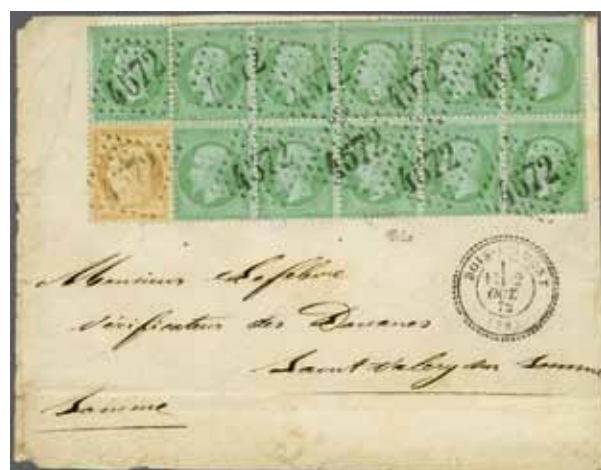 4672 4672 4672 4672 4672
4672 4672 4672 4672
BOIS
OCT
72
Monsieur Lefebvre
Vérificateur des Douanes
Saint Valery sur Somme
Somme